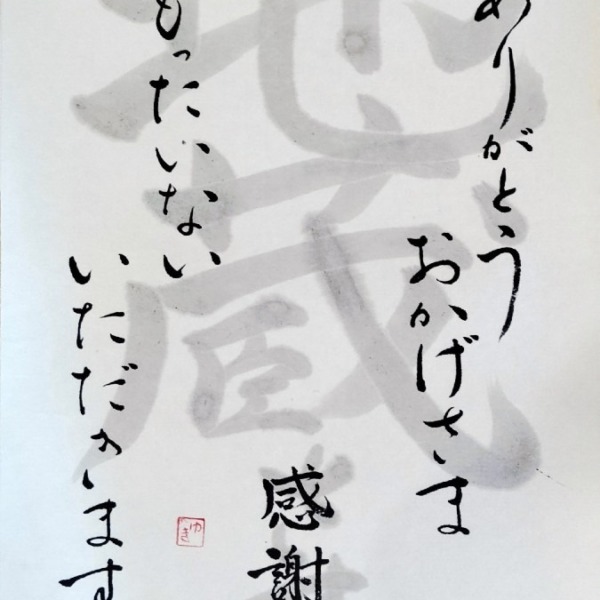 ありがとう
おかげさま
感謝
もったいない
いただきます
地蔵
ゆき